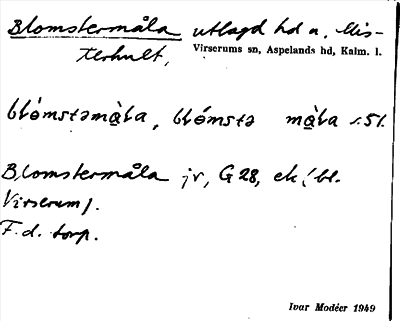 Blomstermåla utlagd hd a. Mis-
terhult, Virserums sn, Aspelands hd, Kalm. l.
blómstəmà̱la, blómstə mà̱la s. 51.
Blomstermåla jr, G 28, ek (bl.
Virserum).
F.d. torp.
Ivar Modéer 1949